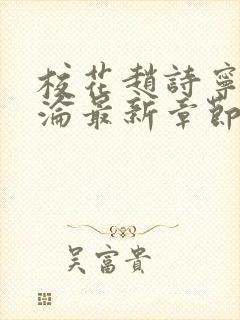 校花趙詩寧
淪最新章節
吳富貴